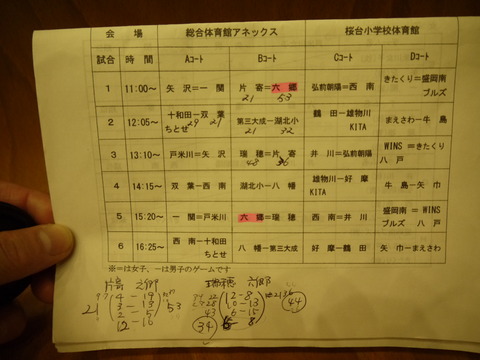 会 場 総合体育館アネックス 桜台小学校体育館
試合 時 間 Aコート Bコート Cコート Dコート
1 11:00～ 矢 沢＝一 関 片 寄＝六 郷 弘前朝陽＝西 南 きたくり＝盛岡南 ブルズ
21 53
2 12:05～ 十和田ー双 葉 ちとせ 第三大成ー湖北小 鶴 田ー雄物川 KITA まえさわー牛 島
29 21 21 32
3 13:10～ 戸米川＝矢沢 瑞 穂＝片 寄 井 川＝弘前朝陽 WINS ＝きたくり 八 戸
4 14:15～ 双 葉ー西 南 湖北小ー八 幡 雄物川ー好 摩 KITA 牛 島ー矢 巾
5 15:20～ 一 関＝戸米川 六 郷＝瑞穂 西 南＝井 川 盛岡南 ＝ WINS ブルズ 八 戸
6 16:25～ 西 南ー十和田 ちとせ 八 幡ー第三大成 好 摩ー鶴 田 矢 巾ーまえさわ
※＝は女子、ーは男子のゲームです
片寄 六郷 瑞穂 六郷
4 - 19 12 - 8
21 3 - 13 53 10 - 13 44
2 - 5 43 6 - 15
12 - 16 34 6 - 8